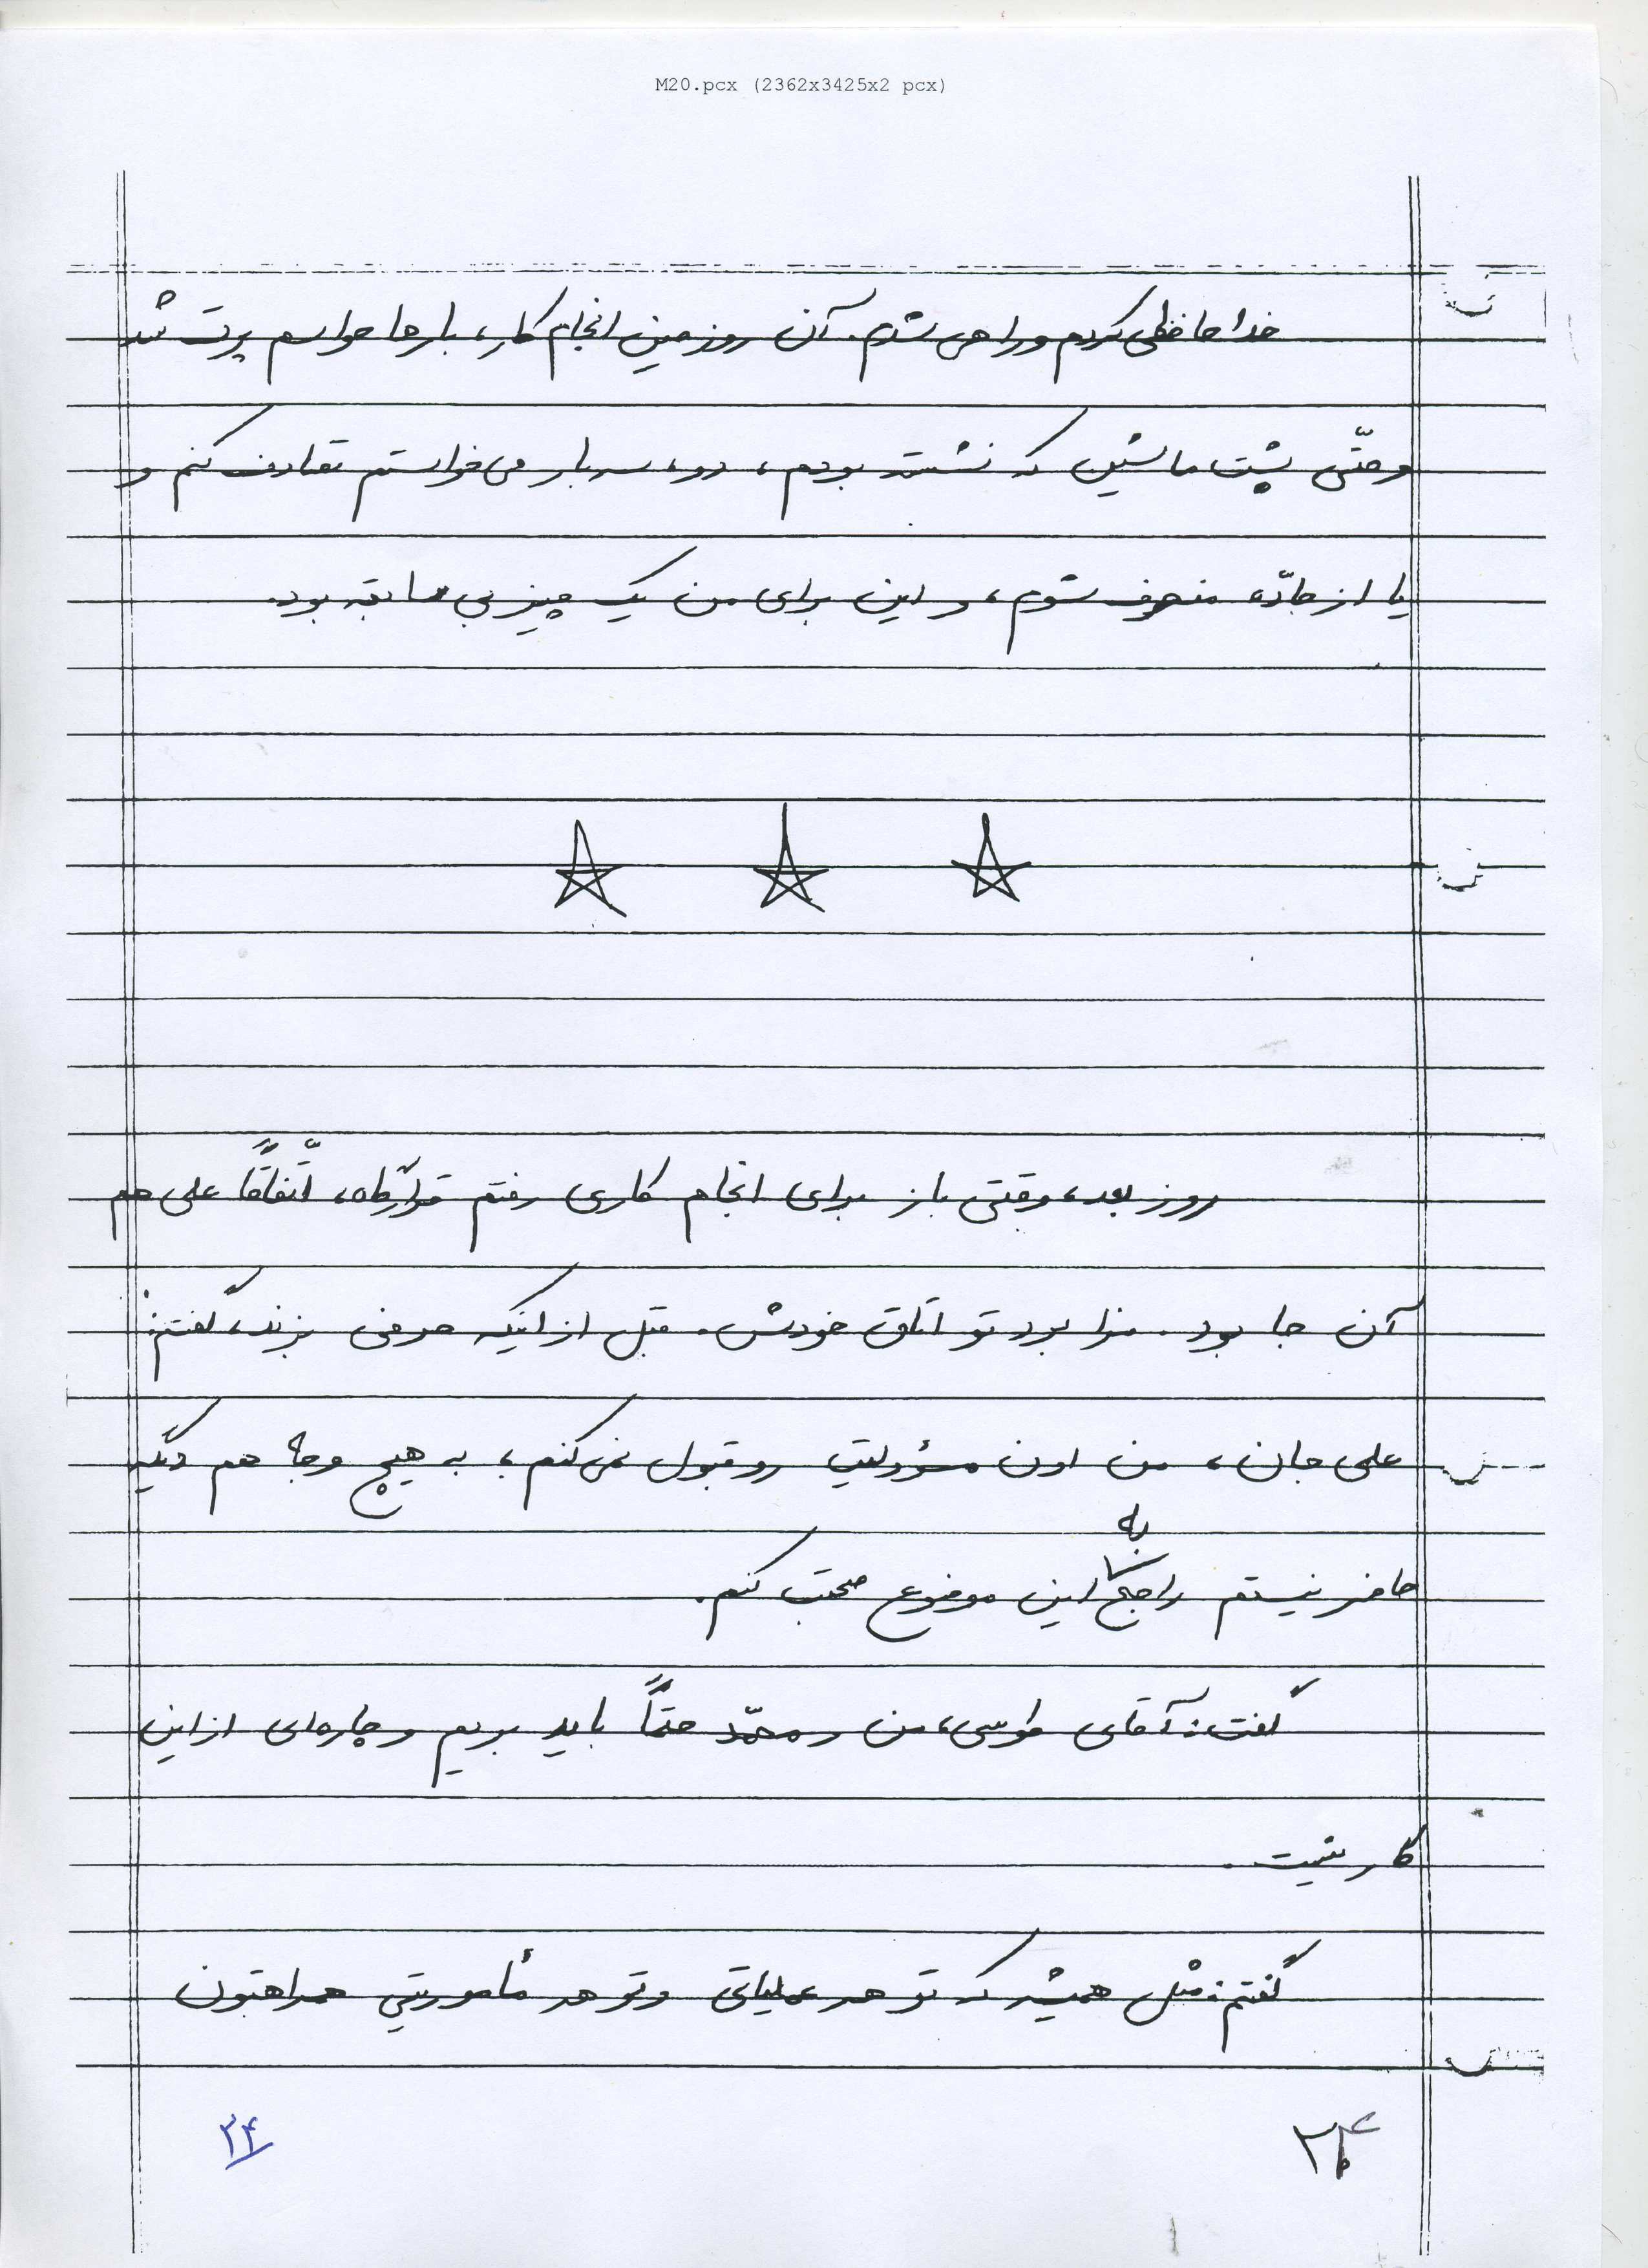 M20.pcx (2362x3425x2 pcx)
خداحافظی کردم و راهی شدم. آن روز حین انجام کار، بارها حواسم پرت شد
و حتّی پشت ماشین که نشسته بودم، دو، سه بار می‌خواستم تصادف کنم و
یا از جادّه منحرف شوم، و این برای من یک چیز بی سابقه بود.
روز بعد، وقتی باز برای انجام کاری رفتم قرارگاه، اتّفاقاً علی هم
آن جا بود. مرا برد تو اتاق خودش. قبل از اینکه حرفی بزند، گفتم:
علی جان، من اون مسؤولیت رو قبول نمی‌کنم، به هیچ وجه هم دیگه
حاضر نیستم راجع به این موضوع صحبت کنم.
گفت: آقای طوسی، من و محمّد حتماً باید بریم و چاره‌ای از این
کار نیست.
گفتم: مثل همیشه که تو هر عملیاتی و تو هر مأموریتی همراهتون
۲۴
۲۴